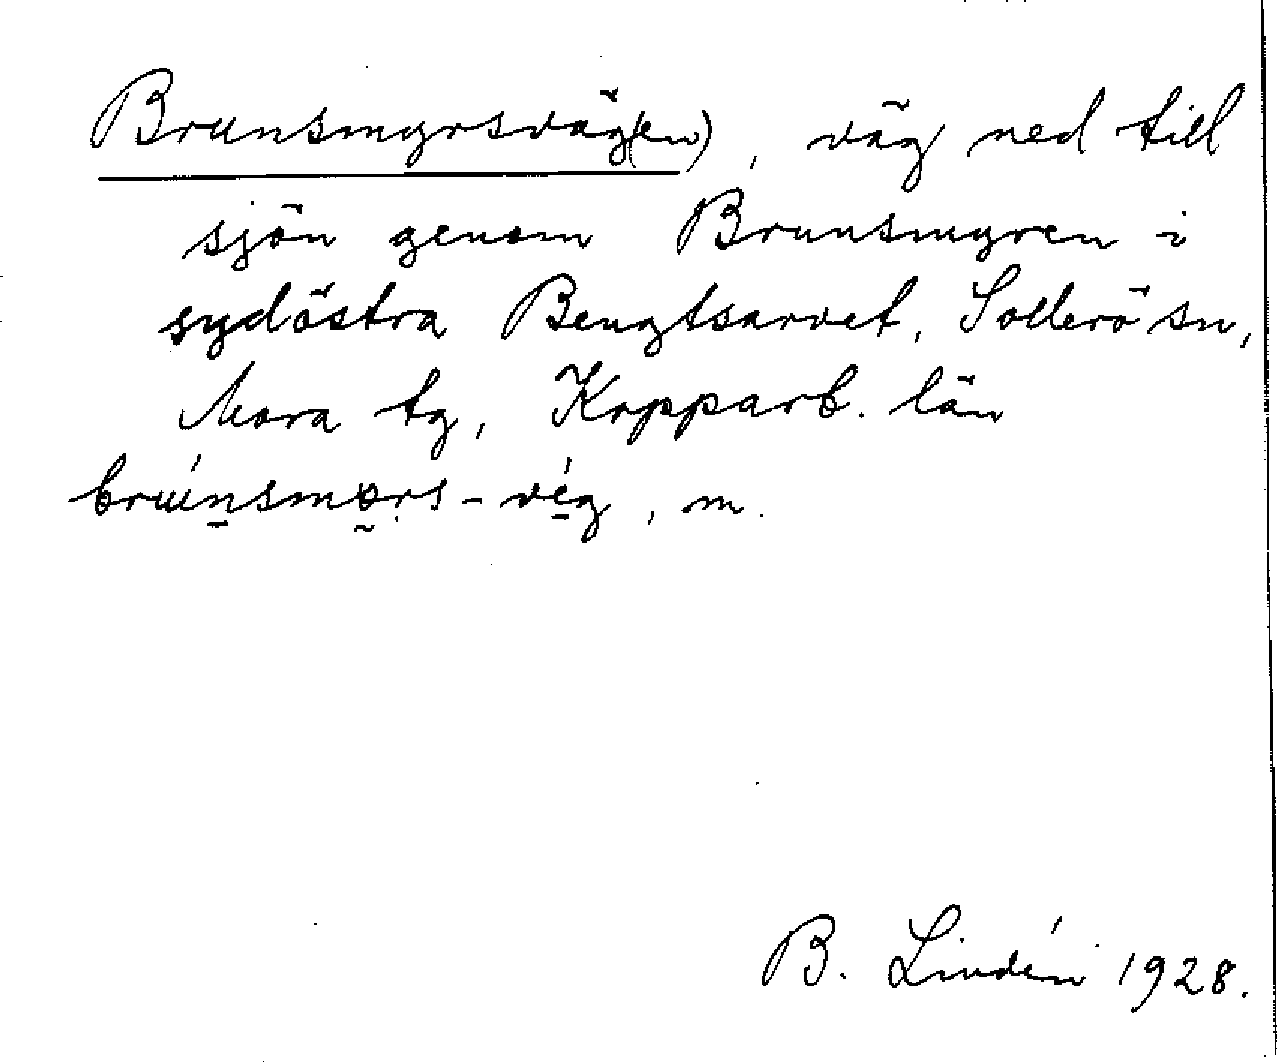 Brunsmyrsväg(en), väg ned till
sjön genom Brunsmyren i
sydöstra Bengtsarvet, Sollerö sn,
Mora tg, Kopparb. län
-väg, m.
B. Lindén 1928.